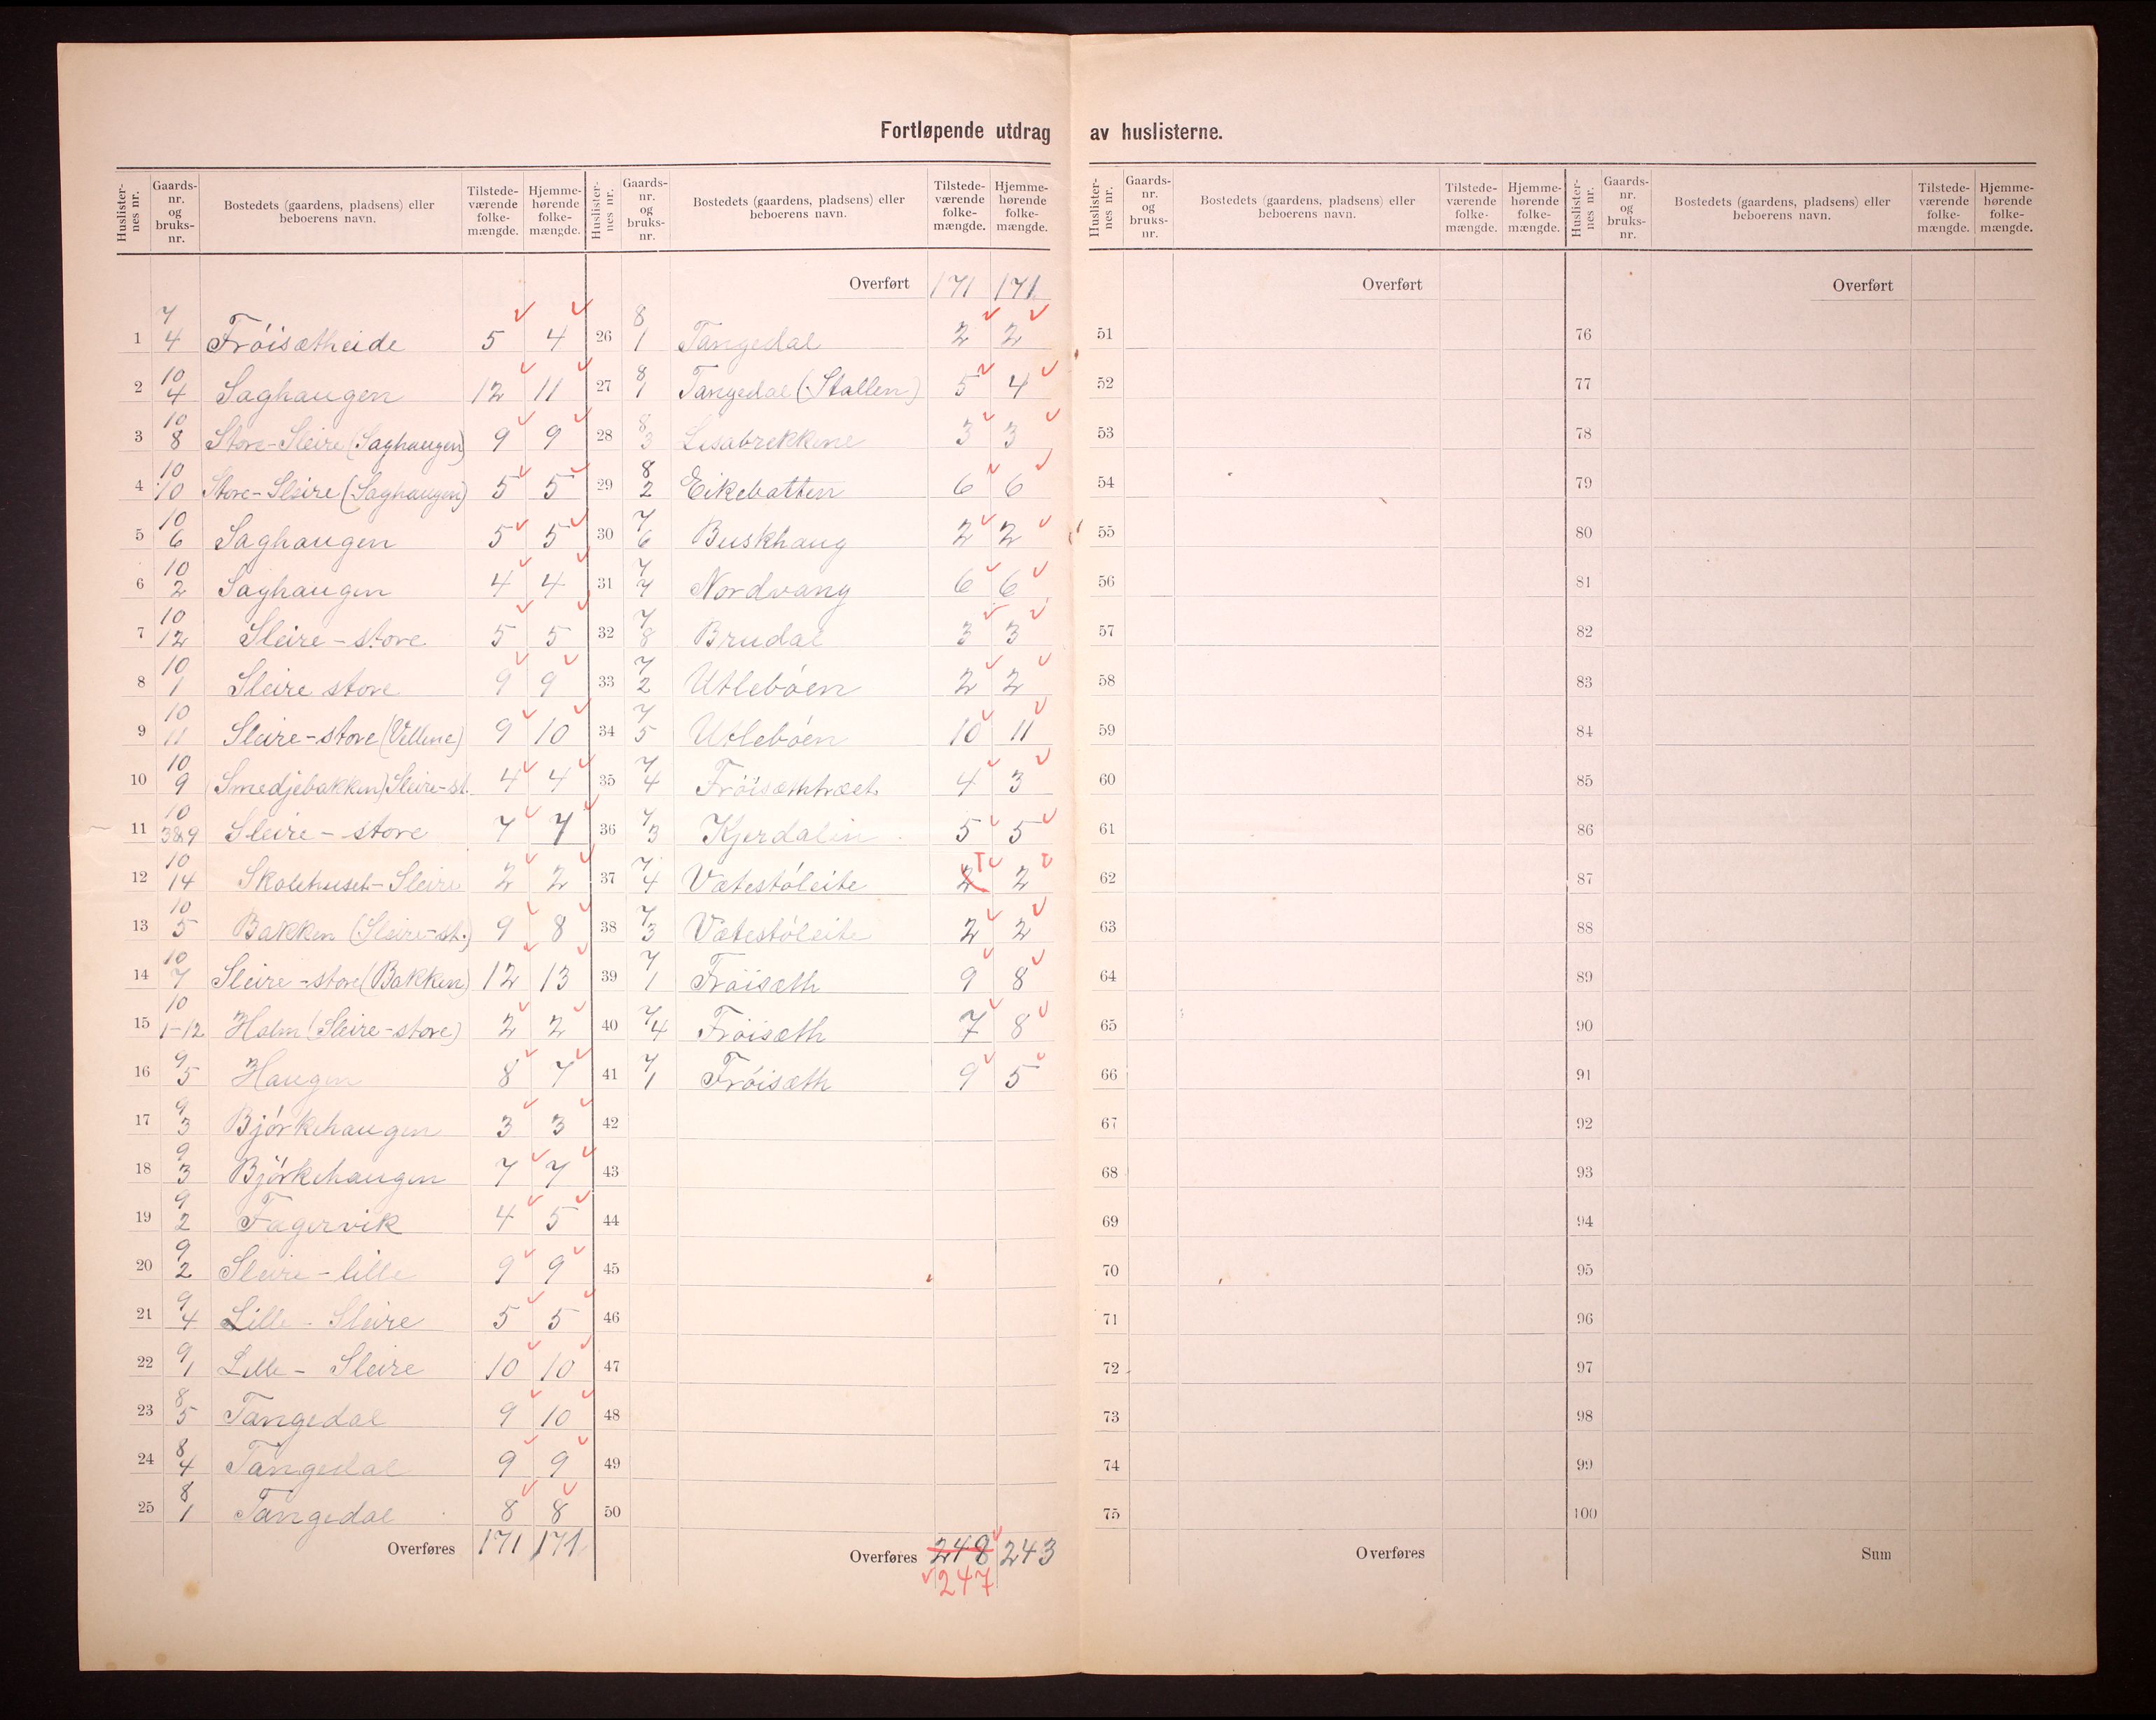 Fortløpende utdrag av huslisterne.
Huslister-nes nr. | Gaards-nr. og bruks-nr. | Bostedets (gaardens, pladsens) eller beboerens navn. | Tilstede-værende folke-mængde. | Hjemme-hørende folke-mængde.
1 7/4 Fröisætheide 5 4
2 10/4 Saghaugen 12 11
3 10/8 Store-Sleire (Saghaugen) 9 9
4 10/10 Store-Sleire (Saghaugen) 5 5
5 10/6 Saghaugen 5 5
6 10/2 Saghaugen 4 4
7 10/12 Sleire-store 5 5
8 10/1 Sleire store 9 9
9 10/11 Sleire-store (Vellene) 9 10
10 10/9 (Smedjebakken) Sleire-st. 4 4
11 10/3&9 Sleire-store 7 7
12 10/14 Skolehuset-Sleire 2 2
13 10/5 Bakken (Sleire-st.) 9 8
14 10/7 Sleire-store (Bakken) 12 13
15 10/1-12 Holm (Sleire-store) 2 2
16 9/5 Haugen 8 7
17 9/3 Björkehaugen 3 3
18 9/3 Björkehaugen 7 7
19 9/2 Fagervik 4 5
20 9/2 Sleire-lille 9 9
21 9/4 Lille-Sleire 5 5
22 9/1 Lille-Sleire 10 10
23 8/5 Tangedal 9 10
24 8/4 Tangedal 9 9
25 8/1 Tangedal 8 8
Overføres 171 171
Huslister-nes nr. | Gaards-nr. og bruks-nr. | Bostedets (gaardens, pladsens) eller beboerens navn. | Tilstede-værende folke-mængde. | Hjemme-hørende folke-mængde.
Overført 171 171
26 8/1 Tangedal 2 2
27 8/1 Tangedal (Stallen) 5 4
28 8/3 Lisabrekkene 3 3
29 8/2 Eikebotten 6 6
30 7/6 Buskhaug 2 2
31 7/7 Nordvang 6 6
32 7/8 Brudal 3 3
33 7/2 Utleböen 2 2
34 7/5 Utleböen 10 11
35 7/4 Fröisæthtræet 4 3
36 7/3 Kjerdalin 5 5
37 7/4 Vætestöleite 2 1 2
38 7/3 Vætestöleite 2 2
39 7/1 Fröisæth 9 8
40 7/4 Fröisæth 7 8
41 7/1 Fröisæth 9 5
42
43
44
45
46
47
48
49
50
Overføres 248 243
247
Huslister-nes nr. | Gaards-nr. og bruks-nr. | Bostedets (gaardens, pladsens) eller beboerens navn. | Tilstede-værende folke-mængde. | Hjemme-hørende folke-mængde.
Overført
51
52
53
54
55
56
57
58
59
60
61
62
63
64
65
66
67
68
69
70
71
72
73
74
75
Overføres
Huslister-nes nr. | Gaards-nr. og bruks-nr. | Bostedets (gaardens, pladsens) eller beboerens navn. | Tilstede-værende folke-mængde. | Hjemme-hørende folke-mængde.
Overført
76
77
78
79
80
81
82
83
84
85
86
87
88
89
90
91
92
93
94
95
96
97
98
99
100
Sum